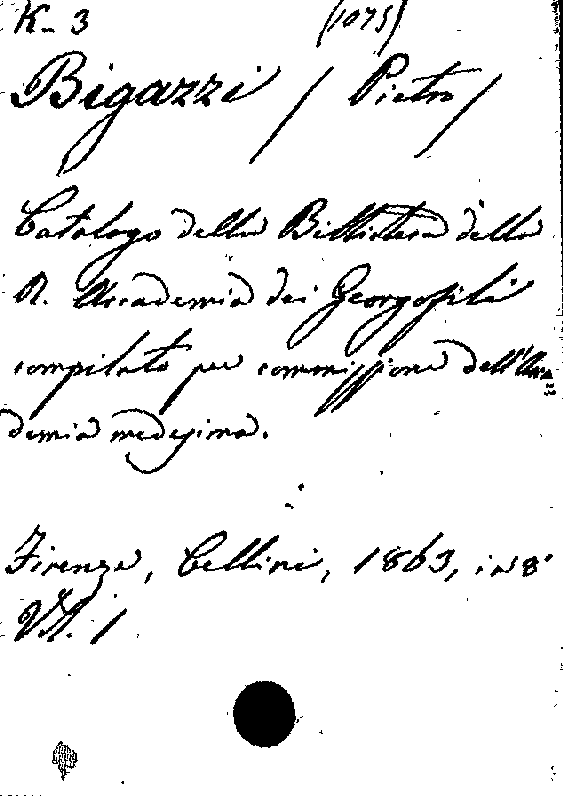 K-3 (1075)
Bigazzi / Pietro /
Catalogo della Biblioteca della
R. Accademia dei Georgofili
compilato per commissione dell'Acca=
demia medesima.
Firenze, Cellini, 1863, in 8°
Vol. 1